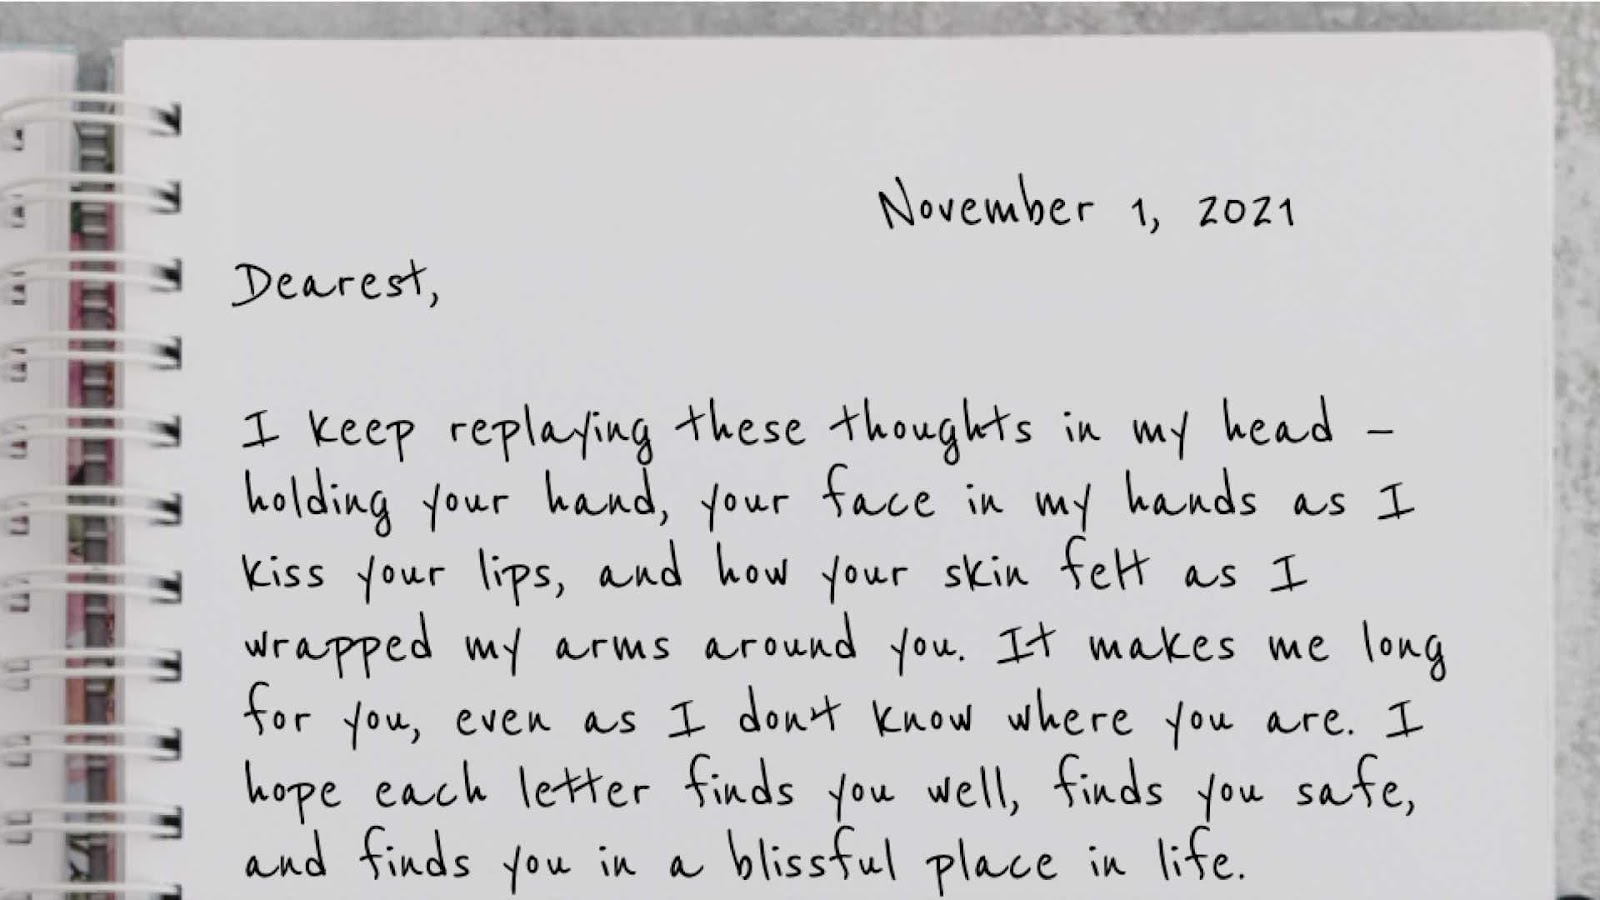 November 1, 2021
Dearest,
I keep replaying these thoughts in my head –
holding your hand, your face in my hands as I
kiss your lips, and how your skin felt as I
wrapped my arms around you. It makes me long
for you, even as I don't know where you are. I
hope each letter finds you well, finds you safe,
and finds you in a blissful place in life.